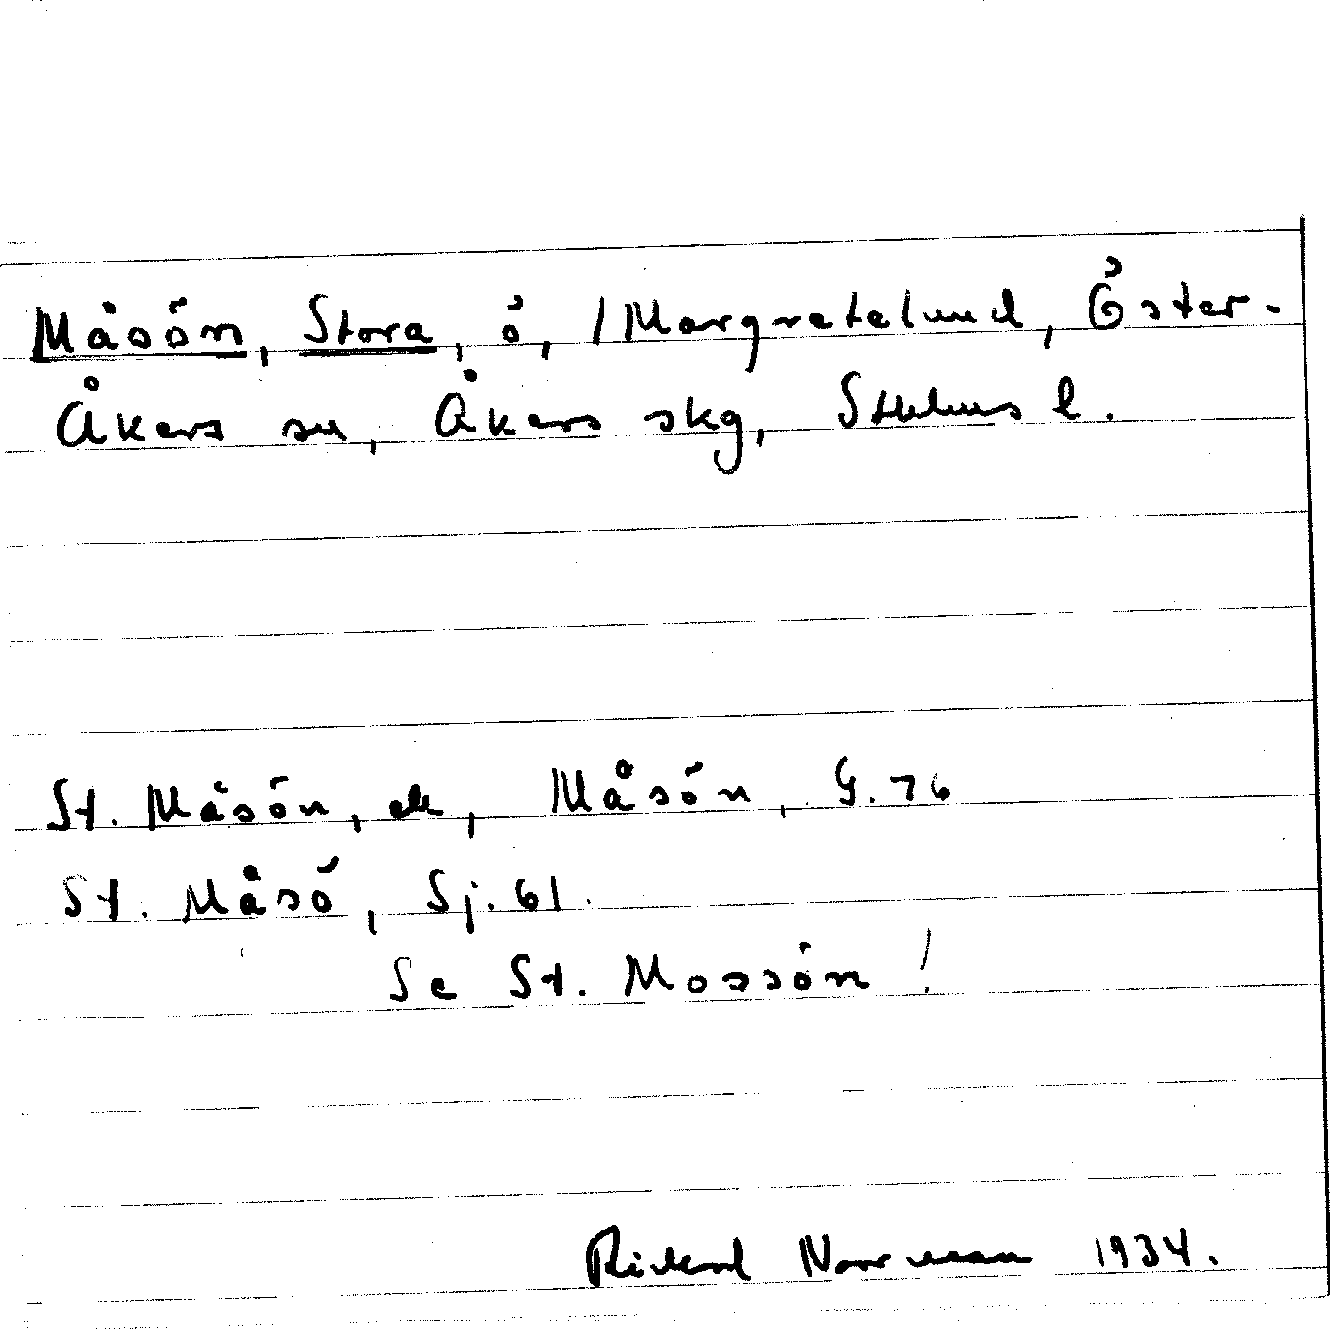 Måsön, Stora, ö, / Margretelund, Öster-
Åkers sn, Åkers skg, Sthlms l.
St. Måsön, ek, Måsön, G. 76
St. Måsö, Sj. 61.
Se St. Mossön!
Rickard Norrman 1934.